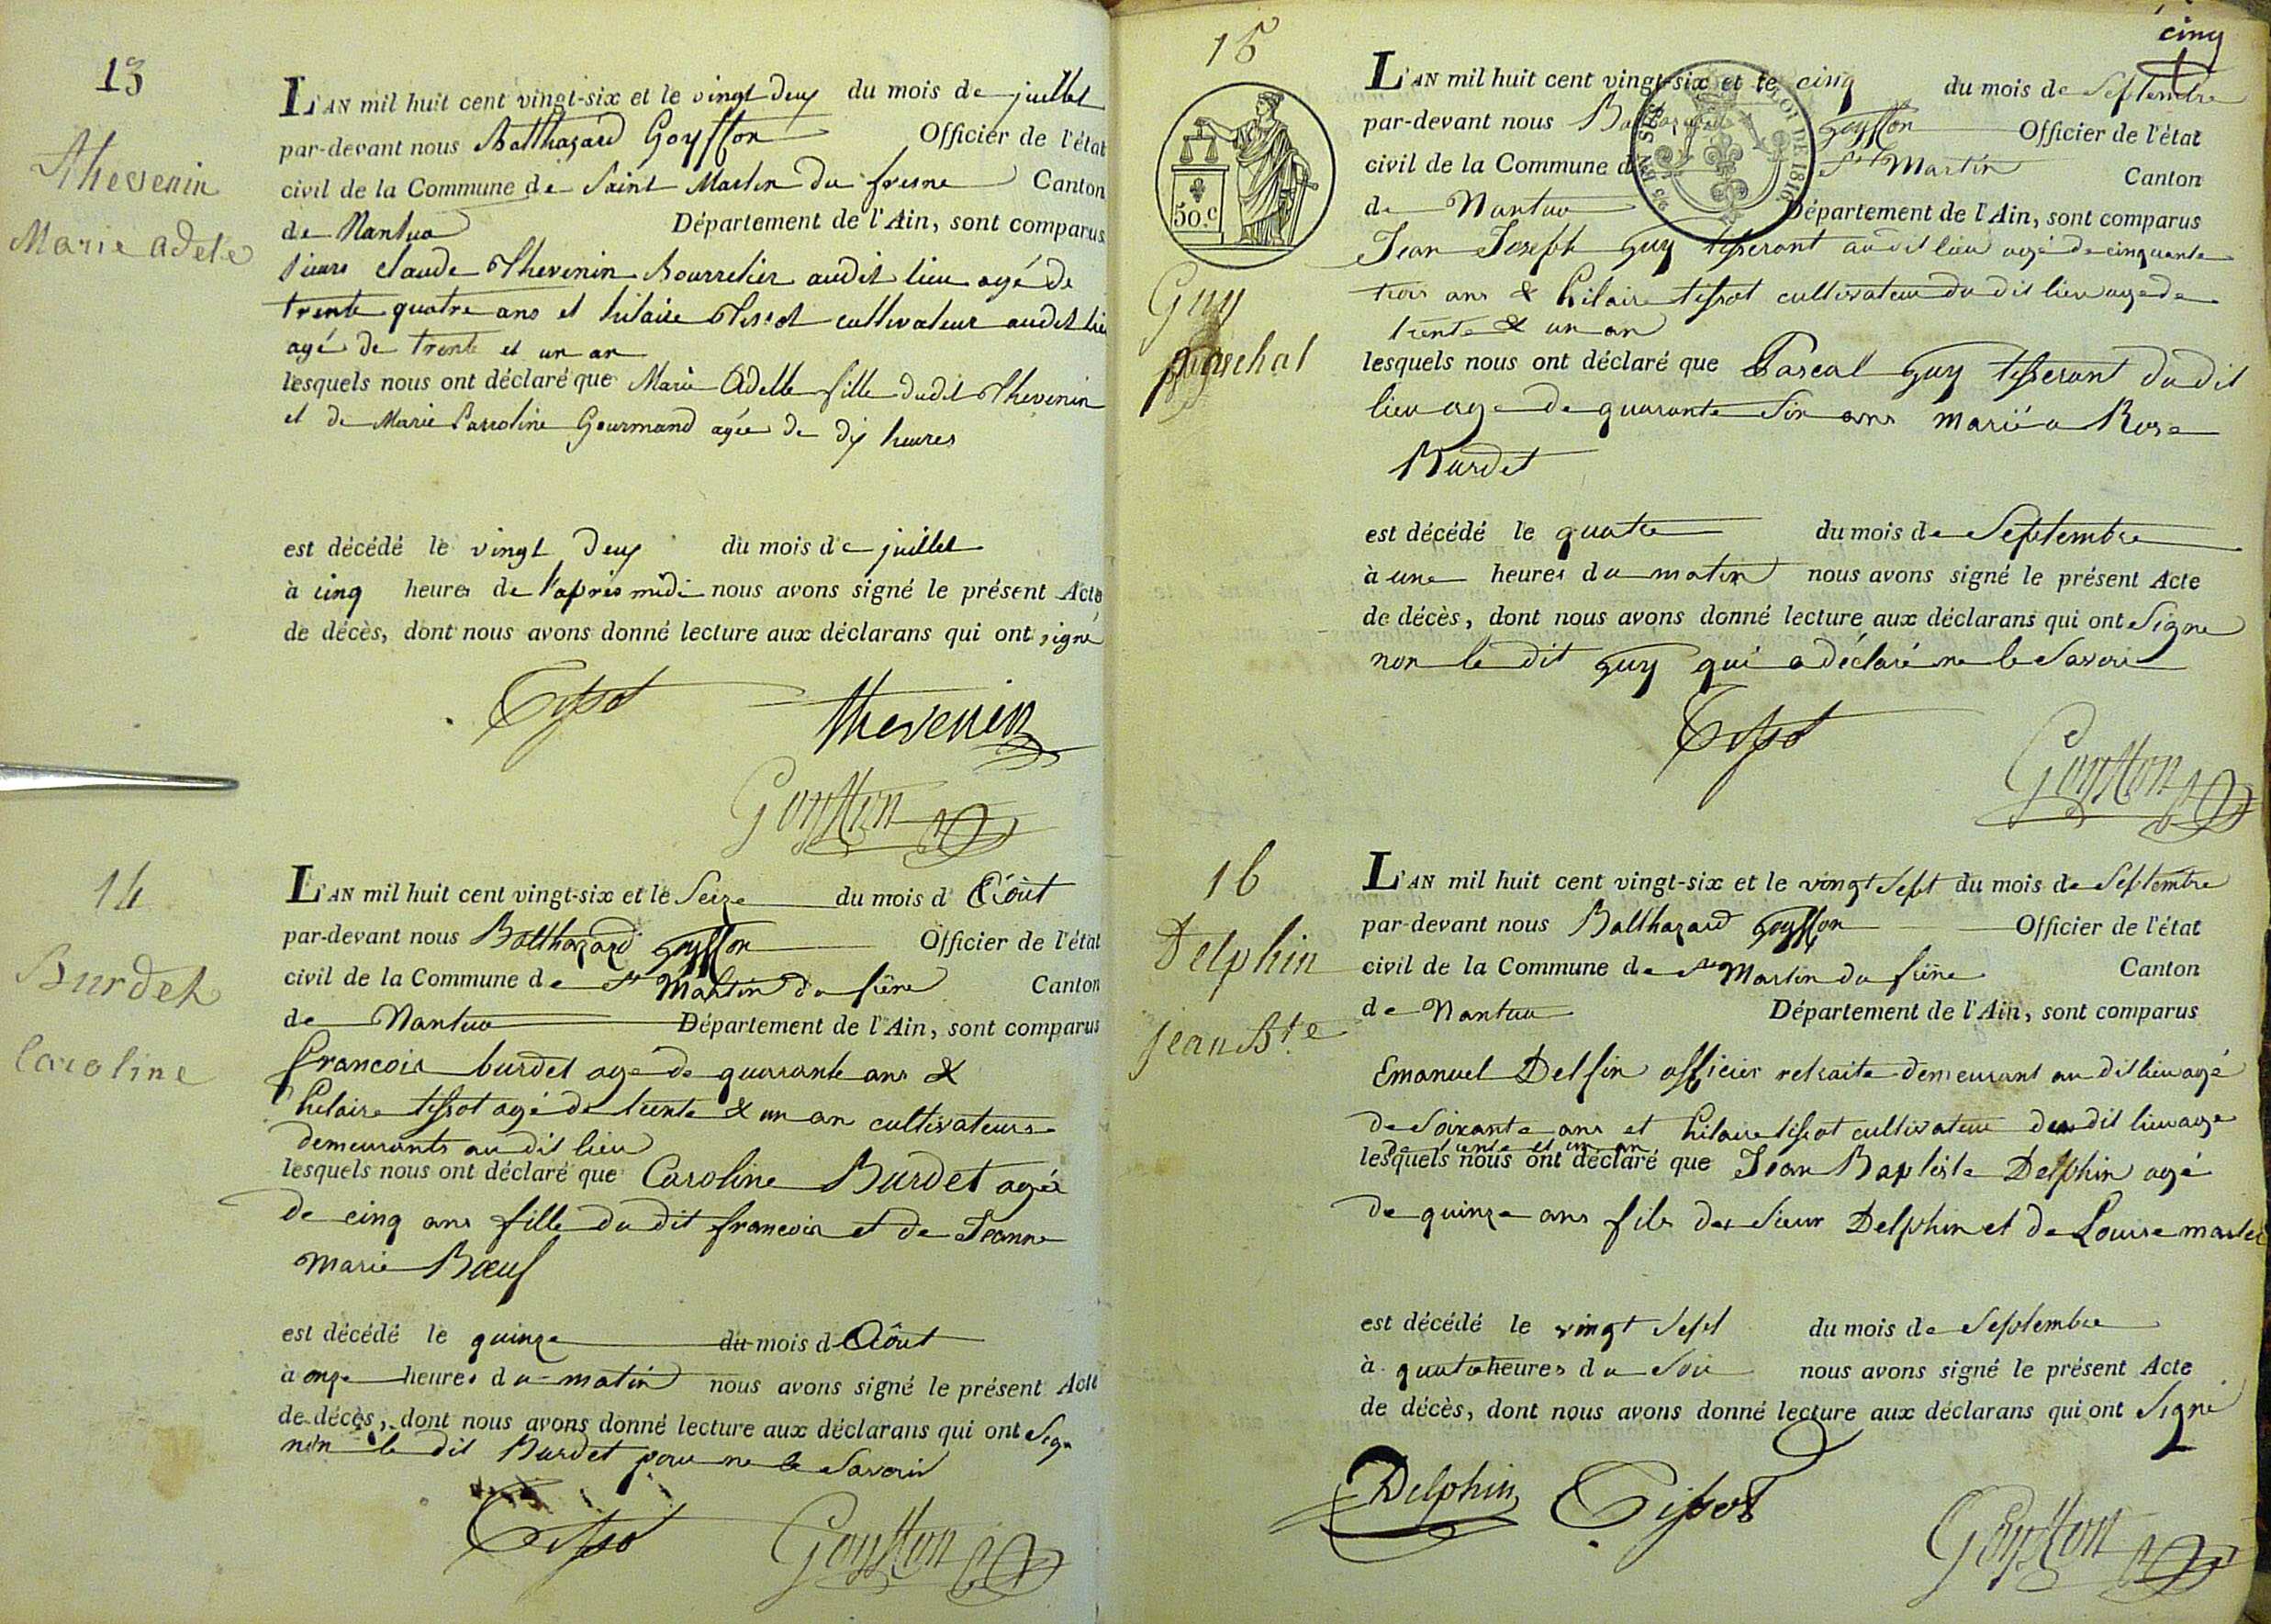 13
Thevenin
Marie adele
L'AN mil huit cent vingt-six et le vingt deux du mois de juillet
par-devant nous Balthazard Goyffon Officier de l'état
civil de la Commune de Saint Martin du fresne Canton
de Nantua Département de l'Ain, sont comparus
sieurs claude Thevenin Bourrelier audit lieu agé de
trente quatre ans et hilaire Tissot cultivateur audit lieu
agé de trente et un an
lesquels nous ont déclaré que Marie Adelle fille dudit Thevenin
et de Marie Carroline Gourmand agée de dix heures
est décédé le vingt deux du mois de juillet
à cinq heures de l'après midi nous avons signé le présent Acte
de décès, dont nous avons donné lecture aux déclarans qui ont signé
Tissot Thevenin
Goyffon
14
Burdet
Caroline
L'AN mil huit cent vingt-six et le Seize du mois d' Août
par-devant nous Balthazard Goyffon Officier de l'état
civil de la Commune de St Martin du frêne Canton
de Nantua Département de l'Ain, sont comparus
francois burdet agé de quarante ans &
hilaire tissot agé de trente & un an cultivateurs
demeurants au dit lieu
lesquels nous ont déclaré que Caroline Burdet agée
de cinq ans fille du dit francois et de Jeanne
Marie Bœuf
est décédé le quinze du mois d Août
à onze heures du matin nous avons signé le présent Acte
de décès, dont nous avons donné lecture aux déclarans qui ont Signé
non le dit Burdet pour ne le Savoir
Tissot Goyffon
cinq
15
50.c
Guy
paschal
L'AN mil huit cent vingt-six et le cinq du mois de Septembre
par-devant nous Balthazard Goyffon Officier de l'état
civil de la Commune de St Martin Canton
de Nantua Département de l'Ain, sont comparus
LOI DE 1816
Jean Joseph Guy tisserant au dit lieu agé de cinquante
trois ans & hilaire tissot cultivateur du dit lieu age de
trente & un an
lesquels nous ont déclaré que Pascal Guy tisserant du dit
lieu age de quarante Six ans marié a Rose
Burdet
est décédé le quatre du mois de Septembre
à une heures du matin nous avons signé le présent Acte
de décès, dont nous avons donné lecture aux déclarans qui ont Signé
non le dit Guy qui a déclaré ne le Savoir
Tissot
Goyffon
16
Delphin
jean Bte
L'AN mil huit cent vingt-six et le vingt Sept du mois de Septembre
par-devant nous Balthazard Goyffon Officier de l'état
civil de la Commune de St Martin du frêne Canton
de Nantua Département de l'Ain, sont comparus
Emanuel Delfin officier retraite demeurant au dit lieu agé
de Soixante ans et hilaire tissot cultivateur du dit lieu age
de trente et un an
lesquels nous ont déclaré que Jean Baptiste Delphin agé
de quinze ans fils des Sieur Delphin et de Louise
est décédé le vingt Sept du mois de Septembre
à quatre heures du Soir nous avons signé le présent Acte
de décès, dont nous avons donné lecture aux déclarans qui ont Signé
Delphin Tissot
Goyffon